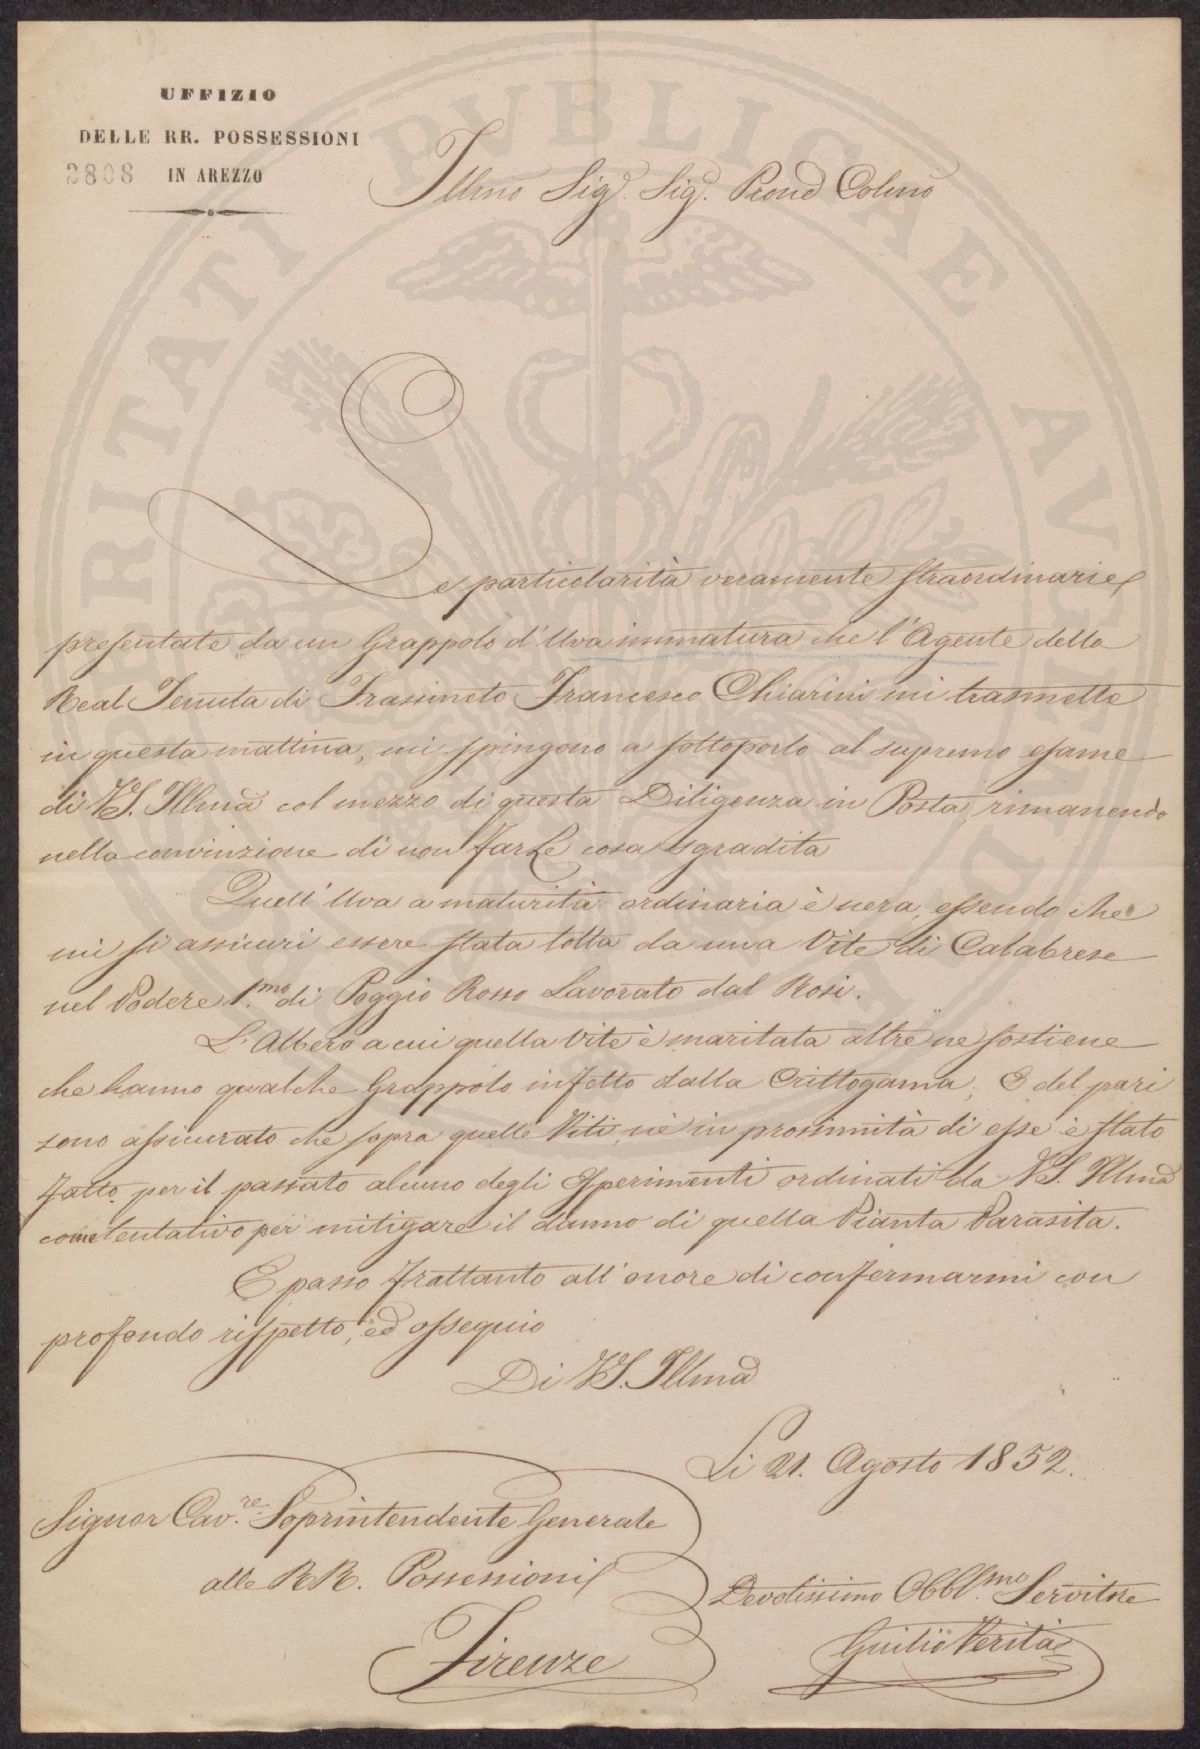 UFFIZIO
DELLE RR. POSSESSIONI
3808 IN AREZZO
Illmo Sig. Sig. Prone Colmo
Le particolarità veramente straordinarie
presentate da un Grappolo d'Uva immatura che l'Agente della
Real Tenuta di Frassineto Francesco Chiarini mi trasmette
in questa mattina, mi spingono a sottoporlo al supremo esame
di VS. Illma col mezzo di questa Diligenza in Posta, rimanendo
nella convinzione di non farLe cosa sgradita
Quell'Uva a maturità ordinaria è nera, essendo che
mi si assicuri essere stata tolta da una Vite di Calabrese
nel Podere 1.mo di Poggio Rosso Lavorato dal Rosi.
L'Albero a cui quella Vite è maritata altre ne sostiene
che hanno qualche Grappolo infetto dalla Crittogama; E del pari
sono assicurato che sopra quelle Viti, nè in prossimità di esse è stato
fatto per il passato alcuno degli Esperimenti ordinati da VS. Illma
come tentativo per mitigare il danno di quella Pianta Parasita.
E passo frattanto all'onore di confermarmi con
profondo rispetto, ed ossequio
Di VS. Illma
Li 21. Agosto 1852.
Signor Cav.re Soprintendente Generale
alle RR. Possessioni
Firenze
Devotissimo Obbl.mo Servitore
Giulio Verità